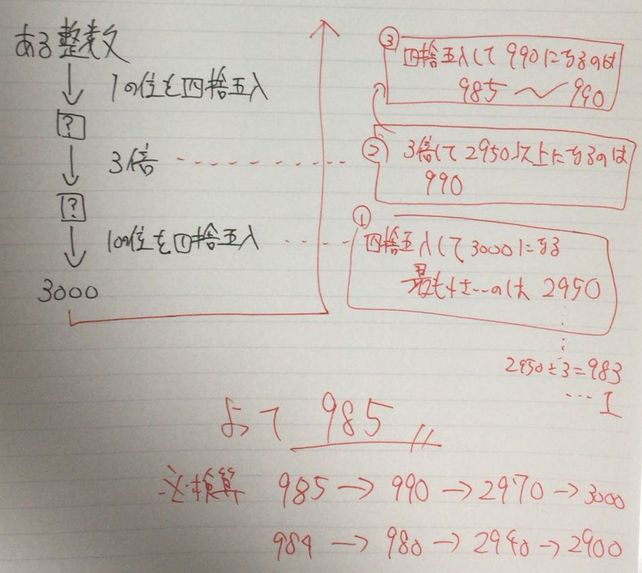 ある整数
1の位を四捨五入
?
3倍
?
100位を四捨五入
3000
③
四捨五入して990になるのは
985〜990
②
3倍して2950以上になるのは
990
①
四捨五入して3000になる
最も小さいのは 2950
2950÷3=983
…1
よって 985
※検算 985→990→2970→3000
984→980→2940→2900